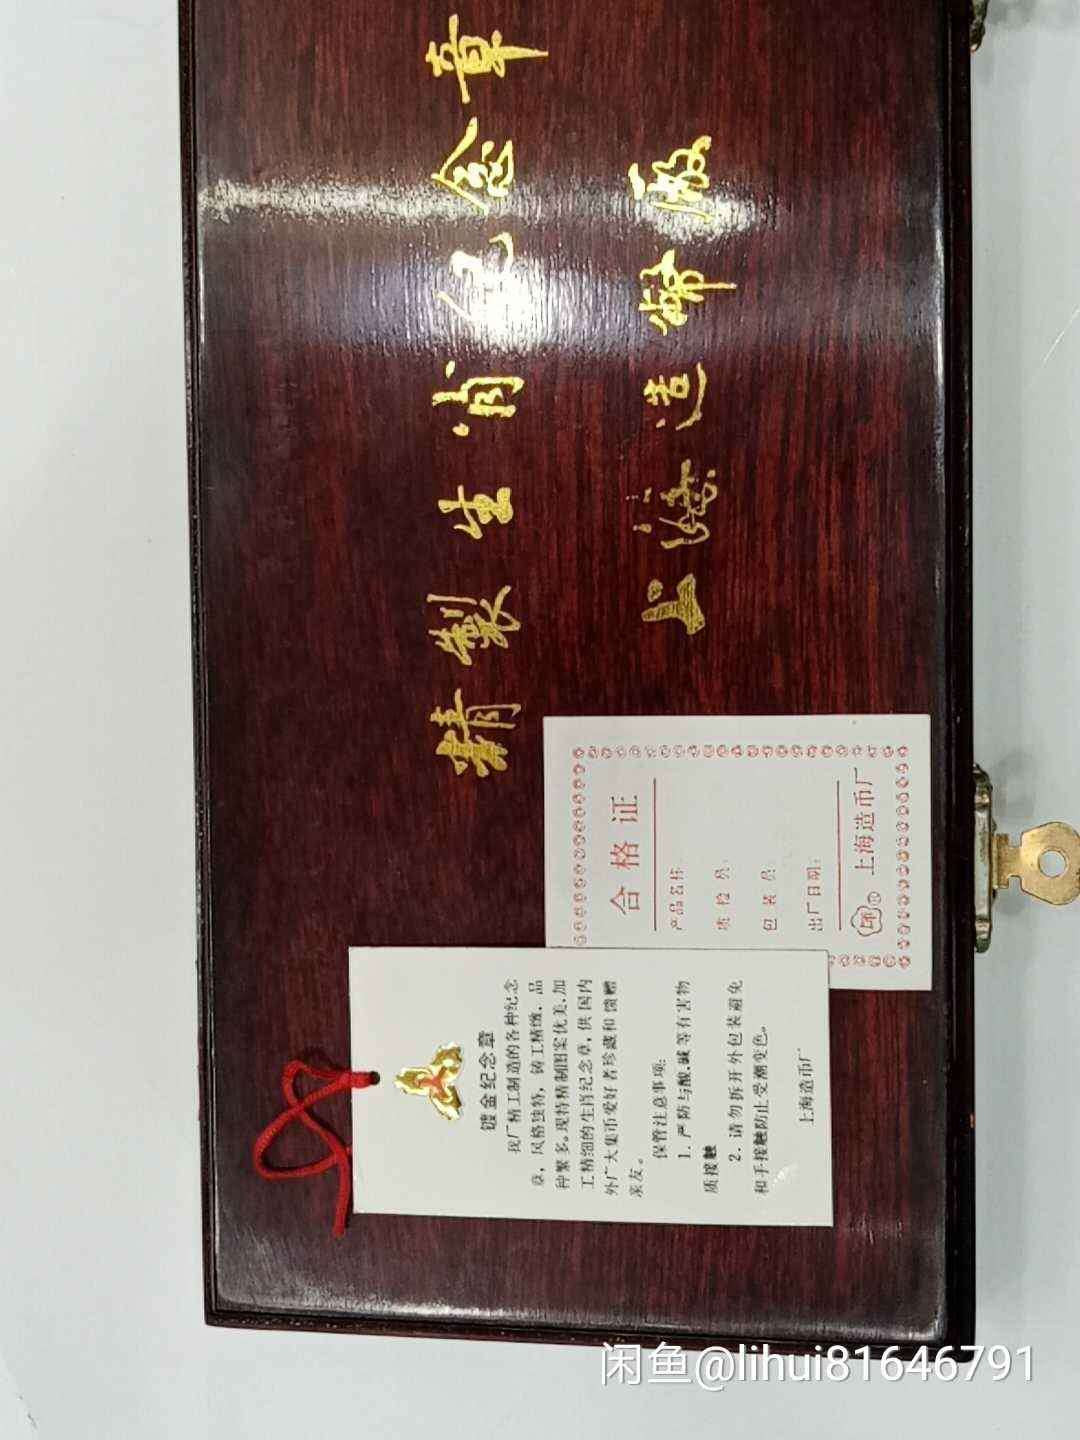 精製生肖紀念章
上海造幣廠
合格证
产品名称:
质检员:
包装员:
出厂日期:
上海造币厂
镀金纪念章
我厂精工制造的各种纪念
章，风格独特，铸工精缴，品
种繁多。现特精制图案优美，加
工精细的生肖纪念章，供国内
外广大集币爱好者珍藏和馈赠
亲友。
保管注意事项:
1. 严防与酸、碱等有害物
质接触
2. 请勿拆开外包装避免
和手接触防止受潮变色。
上海造币厂
闲鱼@lihui81646791